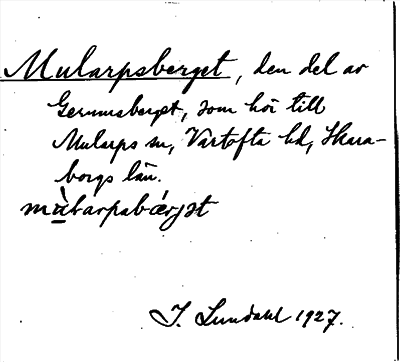 Mularpsberget, den del av
Gerumsberget, som hör till
Mularps sn, Vartofta hd, Skara-
borgs län.
mùlarpsbǽrjət
I. Lundahl 1927.